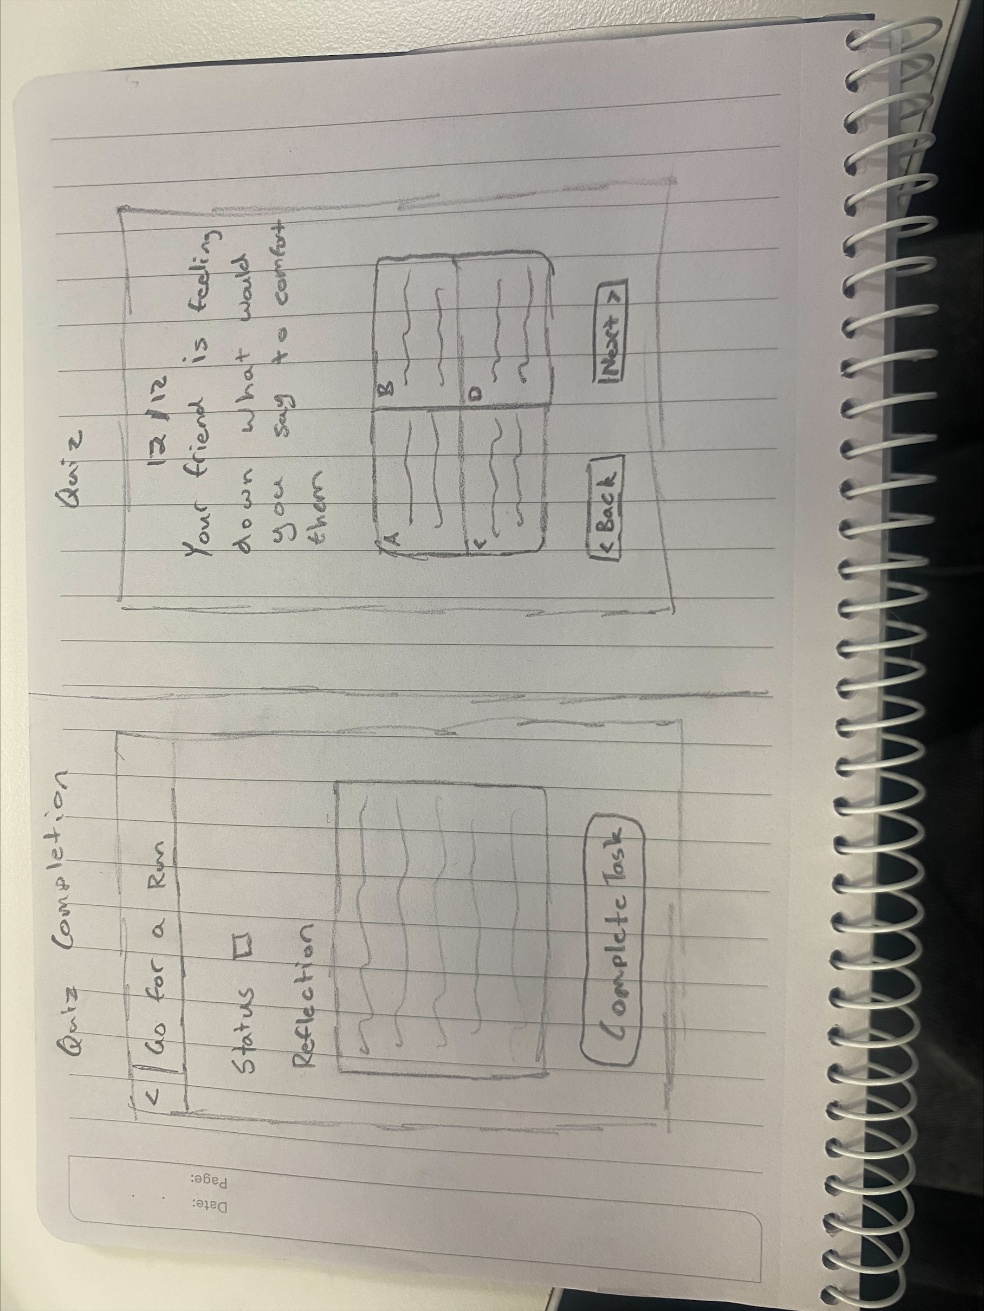 Quiz Completion
< Go for a Run
Status
Reflection
Complete Task
Quiz
12/12
Your friend is feeling
down what would
you say to comfort
them
A
B
C
D
< Back
Next >
Date:
Page: